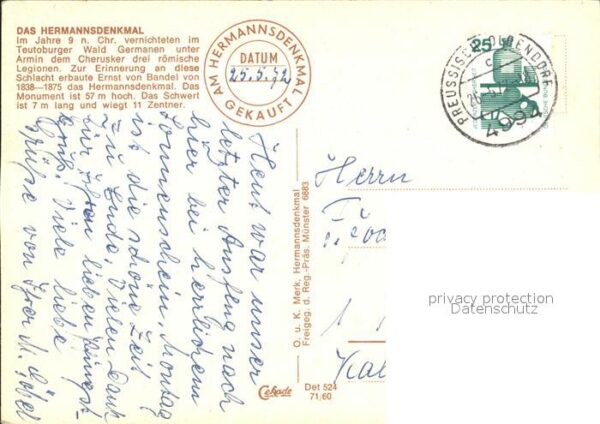 DAS HERMANNSDENKMAL
Im Jahre 9 n. Chr. vernichteten im
Teutoburger Wald Germanen unter
Armin dem Cherusker drei römische
Legionen. Zur Erinnerung an diese
Schlacht erbaute Ernst von Bandel von
1838—1875 das Hermannsdenkmal. Das
Monument ist 57 m hoch. Das Schwert
ist 7 m lang und wiegt 11 Zentner.
AM HERMANNSDENKMAL
DATUM
25.5.72
GEKAUFT
25
PREUSSISCH OLDENDORF
c
4994
Heut war unser
letzter Ausflug nach
hier bei herrlichem
Sonnenschein. Montag
ist die schöne Zeit
zu Ende. Vielen Dank
für Ihren lieben Pfingst-
gruß. Viele liebe
Grüße von Ihrer M. Göbel
O. u. K. Merk, Hermannsdenkmal
Freigeg. d. Reg.-Präs. Münster 6883
Herrn
privacy protection
Datenschutz
Cekade
Det 524
71,60